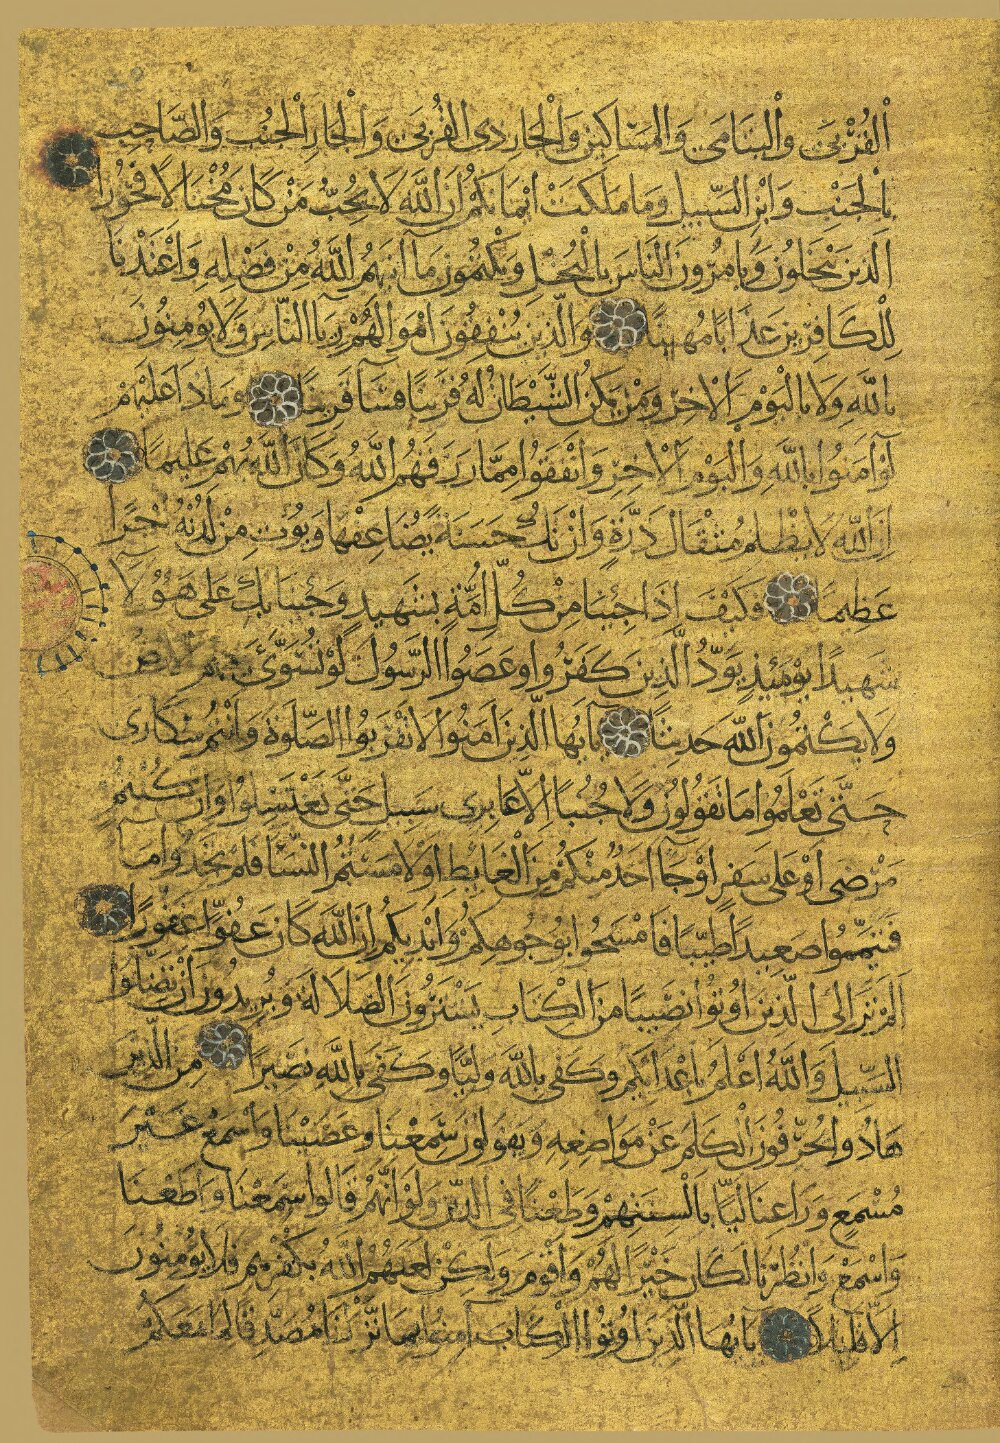 الْقُرْبَى وَالْيَتَامَى وَالْمَسَاكِينِ وَالْجَارِ ذِي الْقُرْبَى وَالْجَارِ الْجُنُبِ وَالصَّاحِبِ
بِالْجَنْبِ وَابْنِ السَّبِيلِ وَمَا مَلَكَتْ أَيْمَانُكُمْ إِنَّ اللَّهَ لَا يُحِبُّ مَنْ كَانَ مُخْتَالًا فَخُورًا
الَّذِينَ يَبْخَلُونَ وَيَأْمُرُونَ النَّاسَ بِالْبُخْلِ وَيَكْتُمُونَ مَا آتَاهُمُ اللَّهُ مِنْ فَضْلِهِ وَأَعْتَدْنَا
لِلْكَافِرِينَ عَذَابًا مُهِينًا وَالَّذِينَ يُنْفِقُونَ أَمْوَالَهُمْ رِيَاءَ النَّاسِ وَلَا يُؤْمِنُونَ
بِاللَّهِ وَلَا بِالْيَوْمِ الْآخِرِ وَمَنْ يَكُنِ الشَّيْطَانُ لَهُ قَرِينًا فَسَاءَ قَرِينًا وَمَاذَا عَلَيْهِمْ
لَوْ آمَنُوا بِاللَّهِ وَالْيَوْمِ الْآخِرِ وَأَنْفَقُوا مِمَّا رَزَقَهُمُ اللَّهُ وَكَانَ اللَّهُ بِهِمْ عَلِيمًا
إِنَّ اللَّهَ لَا يَظْلِمُ مِثْقَالَ ذَرَّةٍ وَإِنْ تَكُ حَسَنَةً يُضَاعِفْهَا وَيُؤْتِ مِنْ لَدُنْهُ أَجْرًا
عَظِيمًا فَكَيْفَ إِذَا جِئْنَا مِنْ كُلِّ أُمَّةٍ بِشَهِيدٍ وَجِئْنَا بِكَ عَلَى هَؤُلَاءِ
شَهِيدًا يَوْمَئِذٍ يَوَدُّ الَّذِينَ كَفَرُوا وَعَصَوُا الرَّسُولَ لَوْ تُسَوَّى بِهِمُ الْأَرْضُ
وَلَا يَكْتُمُونَ اللَّهَ حَدِيثًا يَا أَيُّهَا الَّذِينَ آمَنُوا لَا تَقْرَبُوا الصَّلَوةَ وَأَنْتُمْ سُكَارَى
حَتَّى تَعْلَمُوا مَا تَقُولُونَ وَلَا جُنُبًا إِلَّا عَابِرِي سَبِيلٍ حَتَّى تَغْتَسِلُوا وَإِنْ كُنْتُمْ
مَرْضَى أَوْ عَلَى سَفَرٍ أَوْ جَاءَ أَحَدٌ مِنْكُمْ مِنَ الْغَائِطِ أَوْ لَامَسْتُمُ النِّسَاءَ فَلَمْ تَجِدُوا مَاءً
فَتَيَمَّمُوا صَعِيدًا طَيِّبًا فَامْسَحُوا بِوُجُوهِكُمْ وَأَيْدِيكُمْ إِنَّ اللَّهَ كَانَ عَفُوًّا غَفُورًا
أَلَمْ تَرَ إِلَى الَّذِينَ أُوتُوا نَصِيبًا مِنَ الْكِتَابِ يَشْتَرُونَ الضَّلَالَةَ وَيُرِيدُونَ أَنْ تَضِلُّوا
السَّبِيلَ وَاللَّهُ أَعْلَمُ بِأَعْدَائِكُمْ وَكَفَى بِاللَّهِ وَلِيًّا وَكَفَى بِاللَّهِ نَصِيرًا مِنَ الَّذِينَ
هَادُوا يُحَرِّفُونَ الْكَلِمَ عَنْ مَوَاضِعِهِ وَيَقُولُونَ سَمِعْنَا وَعَصَيْنَا وَاسْمَعْ غَيْرَ
مُسْمَعٍ وَرَاعِنَا لَيًّا بِأَلْسِنَتِهِمْ وَطَعْنًا فِي الدِّينِ وَلَوْ أَنَّهُمْ قَالُوا سَمِعْنَا وَأَطَعْنَا
وَاسْمَعْ وَانْظُرْنَا لَكَانَ خَيْرًا لَهُمْ وَأَقْوَمَ وَلَكِنْ لَعَنَهُمُ اللَّهُ بِكُفْرِهِمْ فَلَا يُؤْمِنُونَ
إِلَّا قَلِيلًا يَا أَيُّهَا الَّذِينَ أُوتُوا الْكِتَابَ آمِنُوا بِمَا نَزَّلْنَا مُصَدِّقًا لِمَا مَعَكُمْ